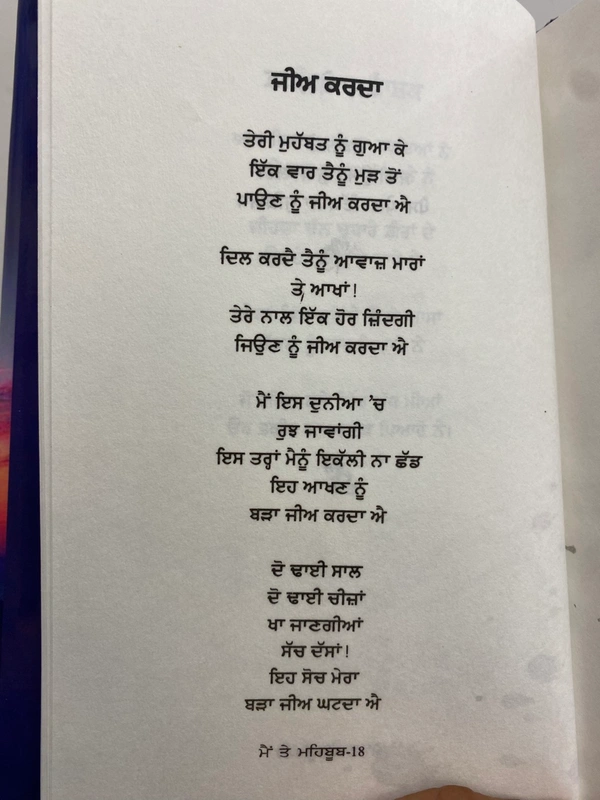 ਜੀਅ ਕਰਦਾ
ਤੇਰੀ ਮੁਹੱਬਤ ਨੂੰ ਗੁਆ ਕੇ
ਇੱਕ ਵਾਰ ਤੈਨੂੰ ਮੁੜ ਤੋਂ
ਪਾਉਣ ਨੂੰ ਜੀਅ ਕਰਦਾ ਐ
ਦਿਲ ਕਰਦੈ ਤੈਨੂੰ ਆਵਾਜ਼ ਮਾਰਾਂ
ਤੇ, ਆਖਾਂ!
ਤੇਰੇ ਨਾਲ ਇੱਕ ਹੋਰ ਜ਼ਿੰਦਗੀ
ਜਿਉਣ ਨੂੰ ਜੀਅ ਕਰਦਾ ਐ
ਮੈਂ ਇਸ ਦੁਨੀਆ ’ਚ
ਰੁਝ ਜਾਵਾਂਗੀ
ਇਸ ਤਰ੍ਹਾਂ ਮੈਨੂੰ ਇਕੱਲੀ ਨਾ ਛੱਡ
ਇਹ ਆਖਣ ਨੂੰ
ਬੜਾ ਜੀਅ ਕਰਦਾ ਐ
ਦੋ ਢਾਈ ਸਾਲ
ਦੋ ਢਾਈ ਚੀਜ਼ਾਂ
ਖਾ ਜਾਣਗੀਆਂ
ਸੱਚ ਦੱਸਾਂ!
ਇਹ ਸੋਚ ਮੇਰਾ
ਬੜਾ ਜੀਅ ਘਟਦਾ ਐ
ਮੈਂ ਤੇ ਮਹਿਬੂਬ-18